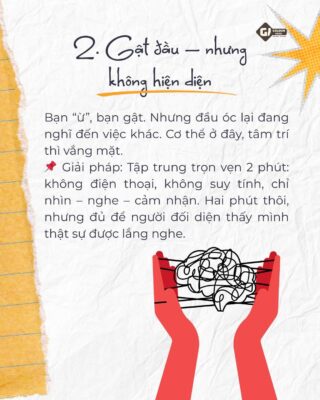 2. Gật đầu – nhưng
không hiện diện
Bạn “ừ”, bạn gật. Nhưng đầu óc lại đang
nghĩ đến việc khác. Cơ thể ở đây, tâm trí
thì vắng mặt.
📌 Giải pháp: Tập trung trọn vẹn 2 phút:
không điện thoại, không suy tính, chỉ
nhìn – nghe – cảm nhận. Hai phút thôi,
nhưng đủ để người đối diện thấy mình
thật sự được lắng nghe.